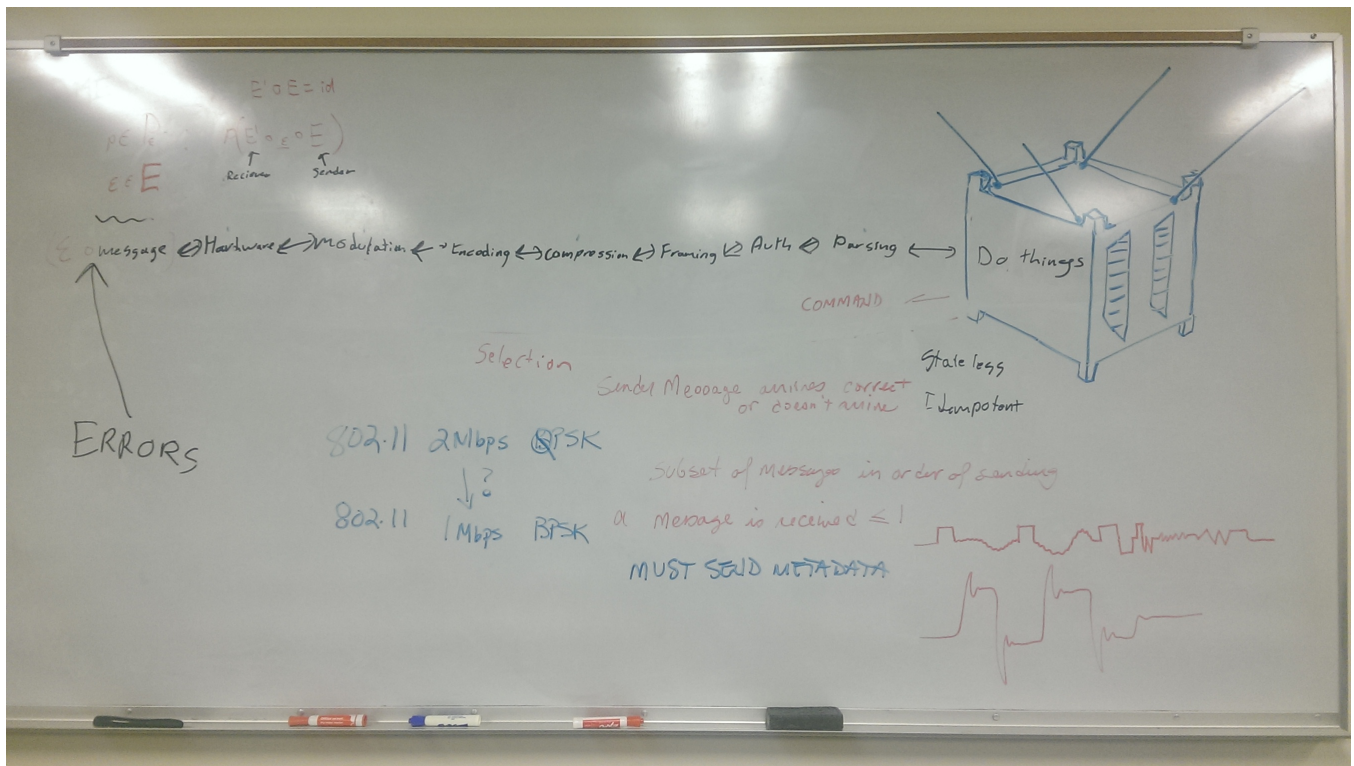 E' o E = id
E' o ε o E
Reciever Sender
ε ∈ E
message ⇔ Hardware ↔ Modulation ↔ Encoding ↔ Compression ↔ Framing ↔ Auth ⇔ Parsing ↔ Do things
COMMAND
Selection
Stateless
Sender Message arrives correct
or doesn't
Idempotent
ERRORS
802.11 2Mbps QPSK
↓?
802.11 1Mbps BPSK
Subset of messages in order of sending
a message is received ≤ 1
MUST SEND METADATA